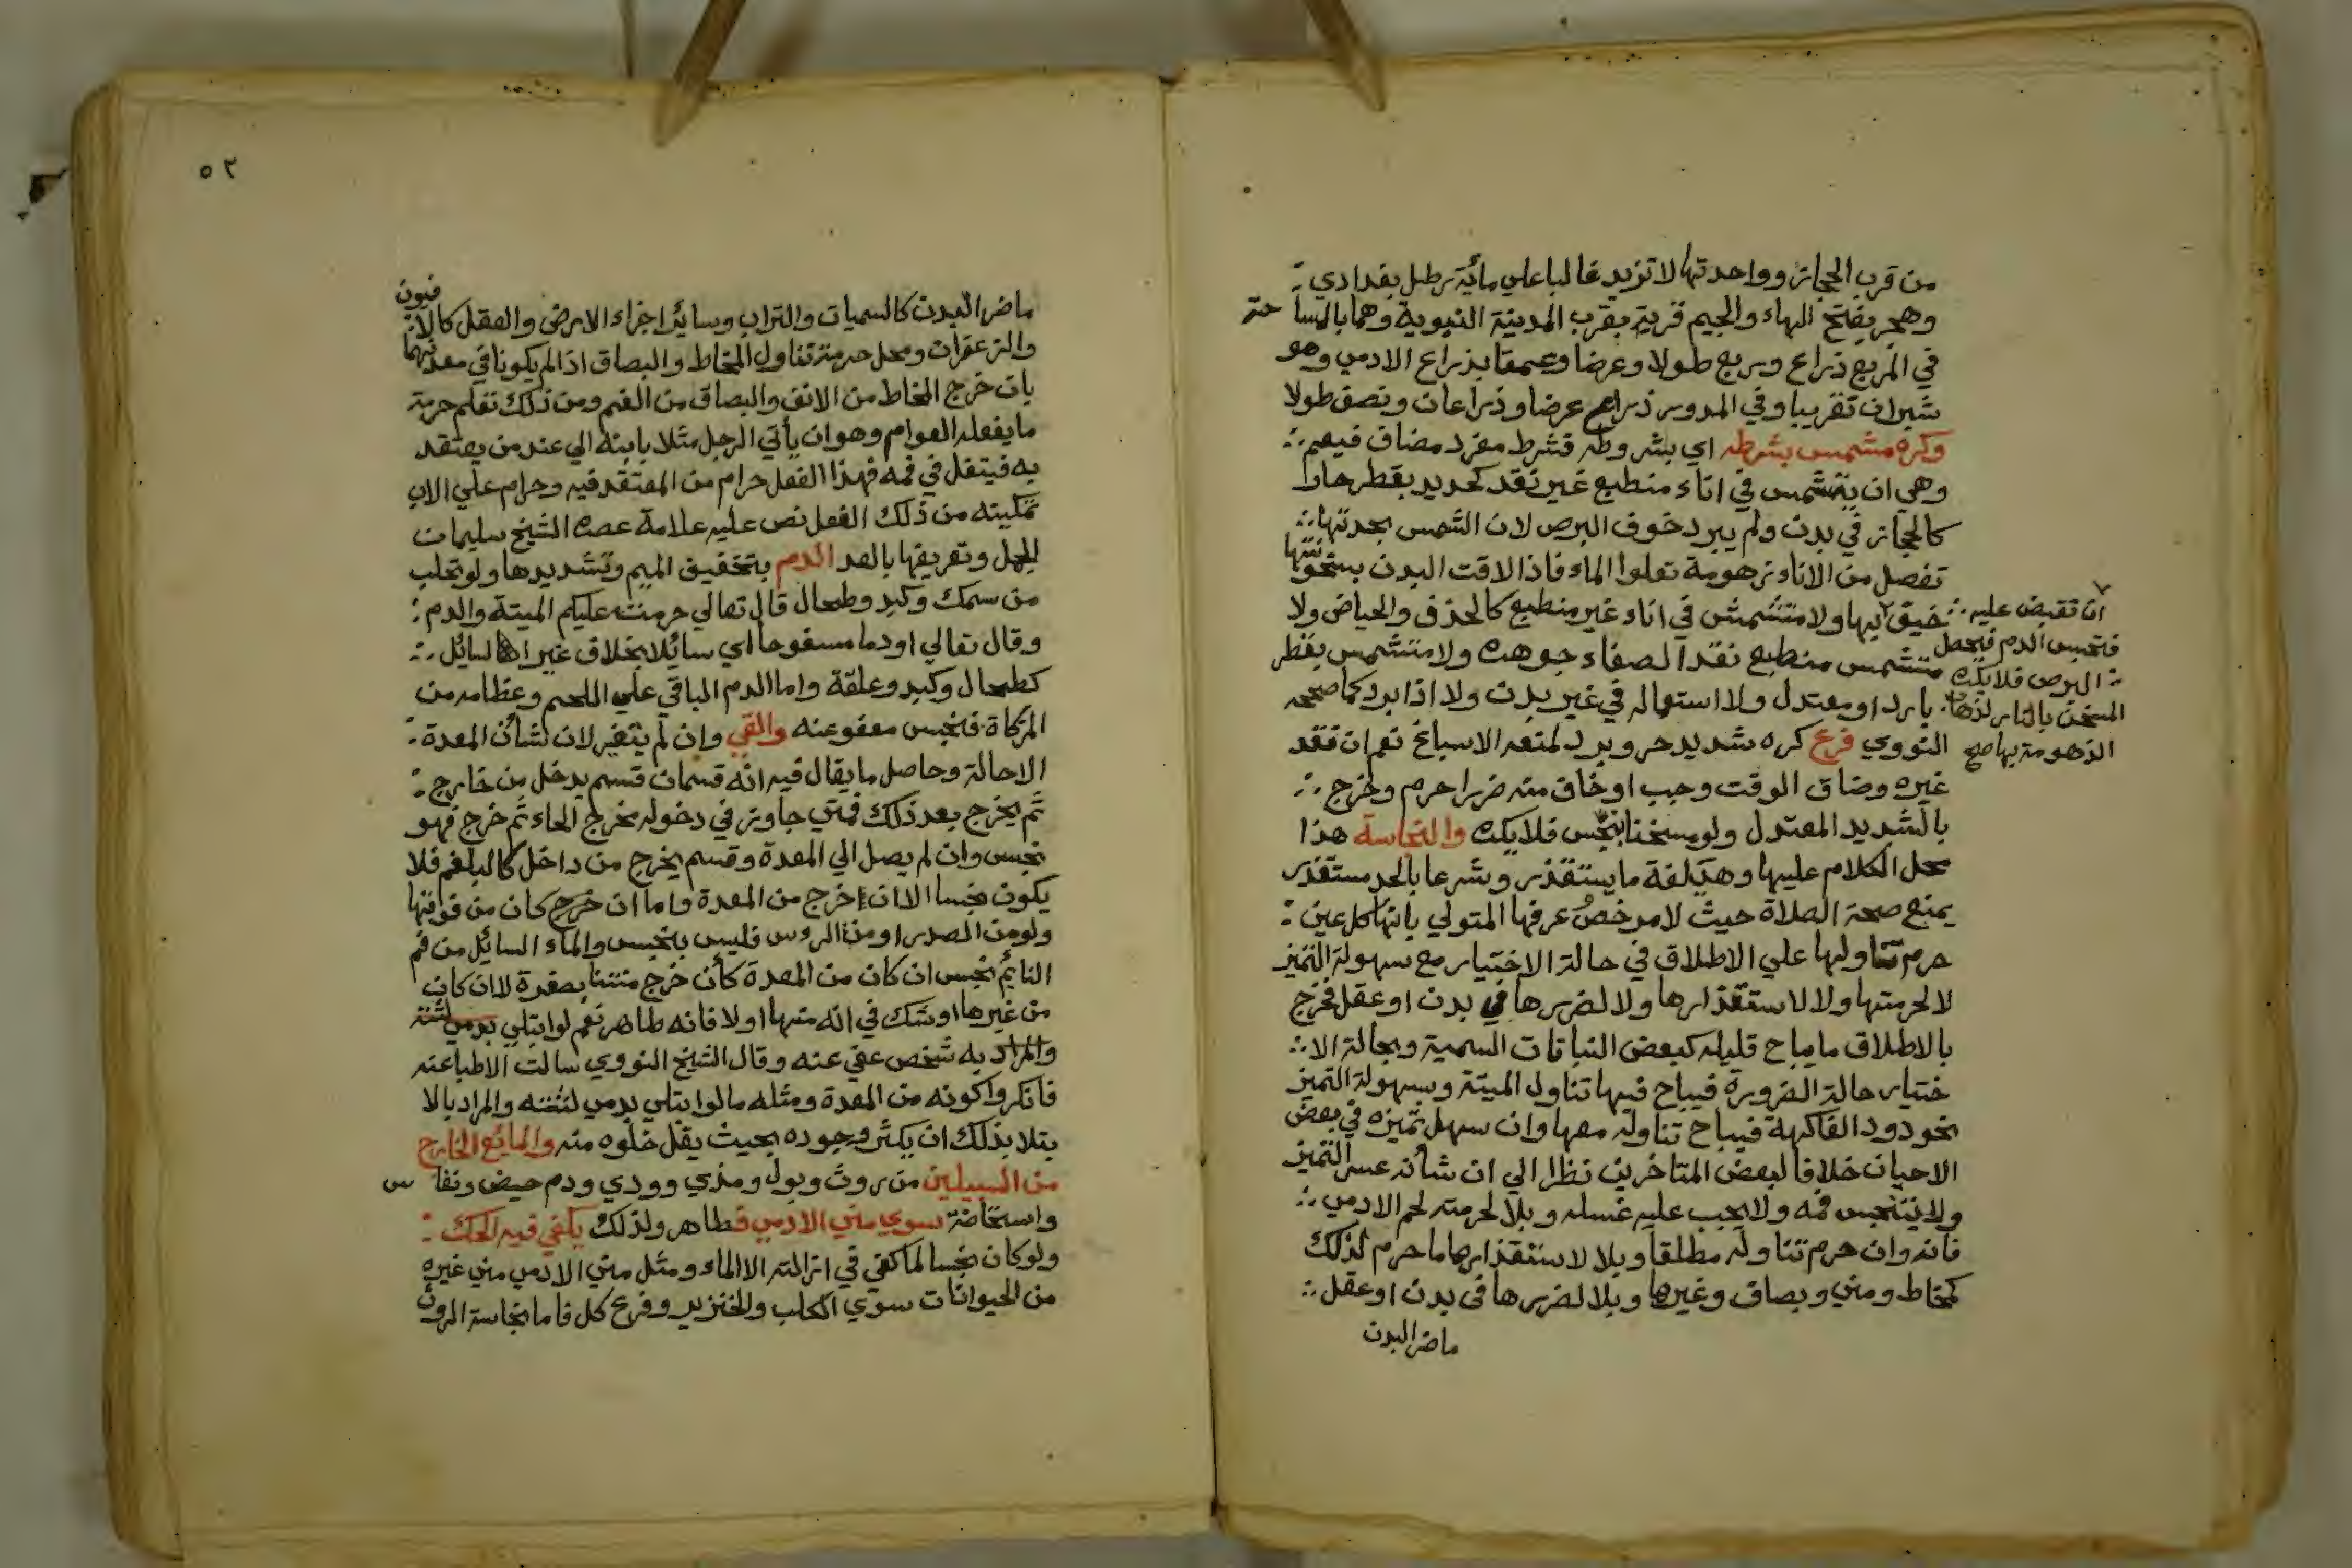 من قرب الحجاز وواحدتها لا تزيد غالبا علي مائة رطل بغدادي
وهجر بفتح الهاء والجيم قرية بقرب المدينة النبوية وهما بالمساحة
في المربع ذراع وربع طولا وعرضا وعمقا بذراع الادمي وهو
شبران تقريبا وفي المدور ذراع عرضا وذراعان ونصف طولا
وكره مشمس بشرطه اي بشروطه فشرط مفرد مضاف فيعم
وهي ان يتشمس في اناء منطبع غير نقد كحديد بقطر حار
كالحجاز في بدن ولم يبرد خوف البرص لان الشمس بحدتها
تفصل من الاناء زهومة تعلوا الماء فاذا لاقت البدن بسخونتها
خيف
ان تقبض عليه
فتحبس الدم فيحصل
البرص فلا يكره
المسخن بالنار لذهاب
الزهومة بها صح
بها ولا متشمش في اناء غير منطبع كالخذف والحياض ولا
متشمس منطبع نقد الصفاء جوهره ولا متشمس بقطر
بارد او معتدل ولا استعماله في غير بدن ولا اذا برد كما صححه
النووي فرع كره شديد حر وبرد لمنعه الاسباغ نعم ان فقد
غيره وضاق الوقت وجب او خاف منه ضررا حرم وخرج
بالشديد المعتدل ولو مسخنا بنجس فلا يكره والنجاسة هذا
محل الكلام عليها وهي لغة ما يستقذر وشرعا بالحد مستقذر
يمنع صحة الصلاة حيث لا مرخص عرفها المتولي بانها كل عين
حرم تناولها علي الاطلاق في حالة الاختيار مع سهولة التميز
لا لحرمتها ولا لاستقذارها ولا لضررها في بدن او عقل فخرج
بالاطلاق ما يباح قليله كبعض النباتات السمية وبحالة الا
ختيار حالة الضرورة فيباح فيها تناول الميتة وبسهولة التميز
نحو دود الفاكهة فيباح تناوله معها وان سهل تميزه في بعض
الاحيان خلافا لبعض المتاخرين نظرا الي ان شأنه عسر التميز
ولا يتنجس فمه ولا يجب عليه غسله وبلا لحرمته لحم الادمي
فانه وان حرم تناوله مطلقا وبلا لاستقذارها ما حرم لذلك
كمخاط ومني وبصاق وغيرها وبلا لضررها في بدن او عقل
ماضر البدن
٥٢
ماضر البدن كالسميات والتراب وسائر اجزاء الارض والعقل كالافيون
والزعفران ومحل حرمة تناول المخاط والبصاق اذا لم يكونا في معدنهما
بان خرج المخاط من الانف والبصاق من الفم ومن ذلك تعلم حرمة
ما يفعله العوام وهو ان يأتي الرجل مثلا بابنه الي عند من يعتقد
به فيتفل في فمه فهذا الفعل حرام من المعتقد فيه وحرام علي الاب
تمكينه من ذلك الفعل نص عليه علامة عصره الشيخ سليمان
الجمل وتعريفها بالعد الدم بتخفيف الميم وتشديدها ولو تحلب
من سمك وكبد وطحال قال تعالي حرمت عليكم الميتة والدم
وقال تعالي او دما مسفوحا اي سائلا بخلاف غير السائل
كطحال وكبد وعلقة واما الدم الباقي علي اللحم وعظامه من
المزكاة فنجس معفو عنه والقي وان لم يتغير لان شأن المعدة
الاحالة وحاصل ما يقال فيه انه قسمان قسم يدخل من خارج
ثم يخرج بعد ذلك فمتي جاوز في دخوله مخرج الحاء ثم خرج فهو
نجس وان لم يصل الي المعدة وقسم يخرج من داخل كالبلغم فلا
يكون نجسا الا ان خرج من المعدة واما ان خرج كان من فوقها
ولو من الصدر او من الروس فليس بنجس والماء السائل من فم
النائم نجس ان كان من المعدة كأن خرج منتنا بصفرة لا ان كان
من غيرها او شك في انه منها او لا فانه طاهر نعم لو ابتلي
والمراد به شخص عفي عنه وقال الشيخ النووي سالت الاطبا عنه
فانكروا كونه من المعدة ومثله ما لو ابتلي بدمي لثته والمراد بالا
بتلا بذلك ان يكثر وجوده بحيث يقل خلوه منه والمائع الخارج
من السبيلين من روث وبول ومذي وودي ودم حيض ونفاس
واستحاضة سوي مني الادمي فطاهر ولذلك يكفي فيه الحك
ولو كان نجسا لما كفي في ازالته الا الماء ومثل مني الادمي مني غيره
من الحيوانات سوي الكلب والخنزير وفرع كل فاما نجاسة الروث